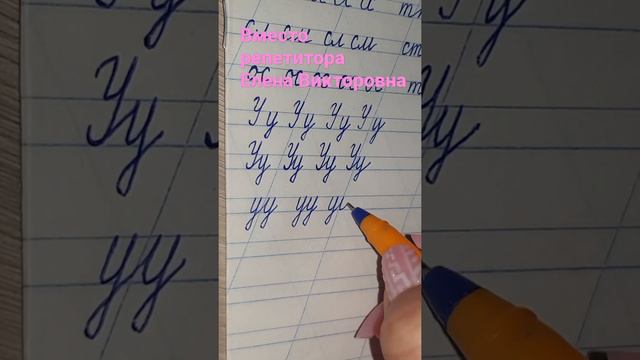 Вместо
репетитора
Елена Викторовна
сл см сл см
Уу Уу Уу Уу
Уу Уу Уу Уу
уу уу уи